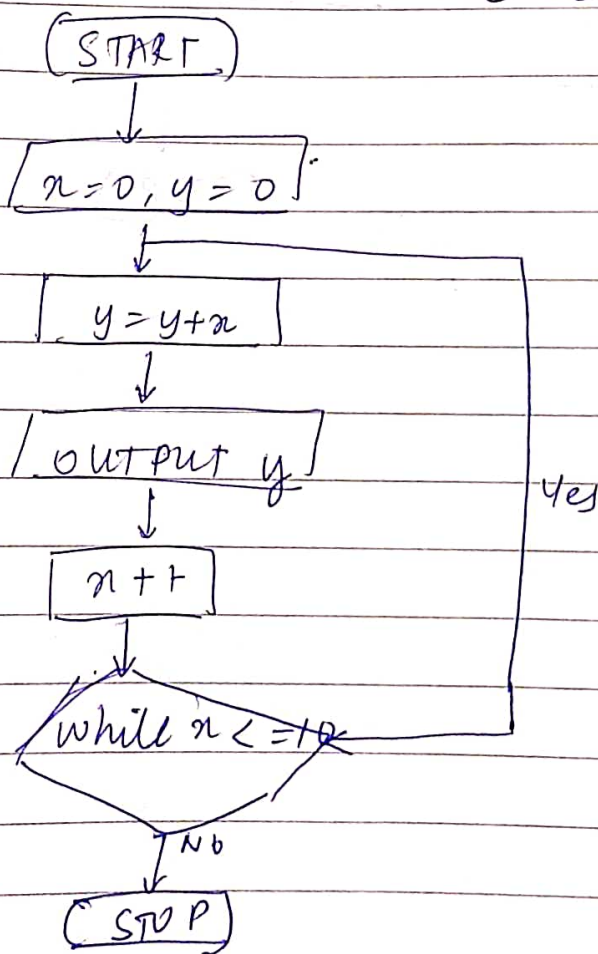 START
x=0, y=0
y=y+x
OUTPUT y
x+1
Yes
while x<=10
No
STOP